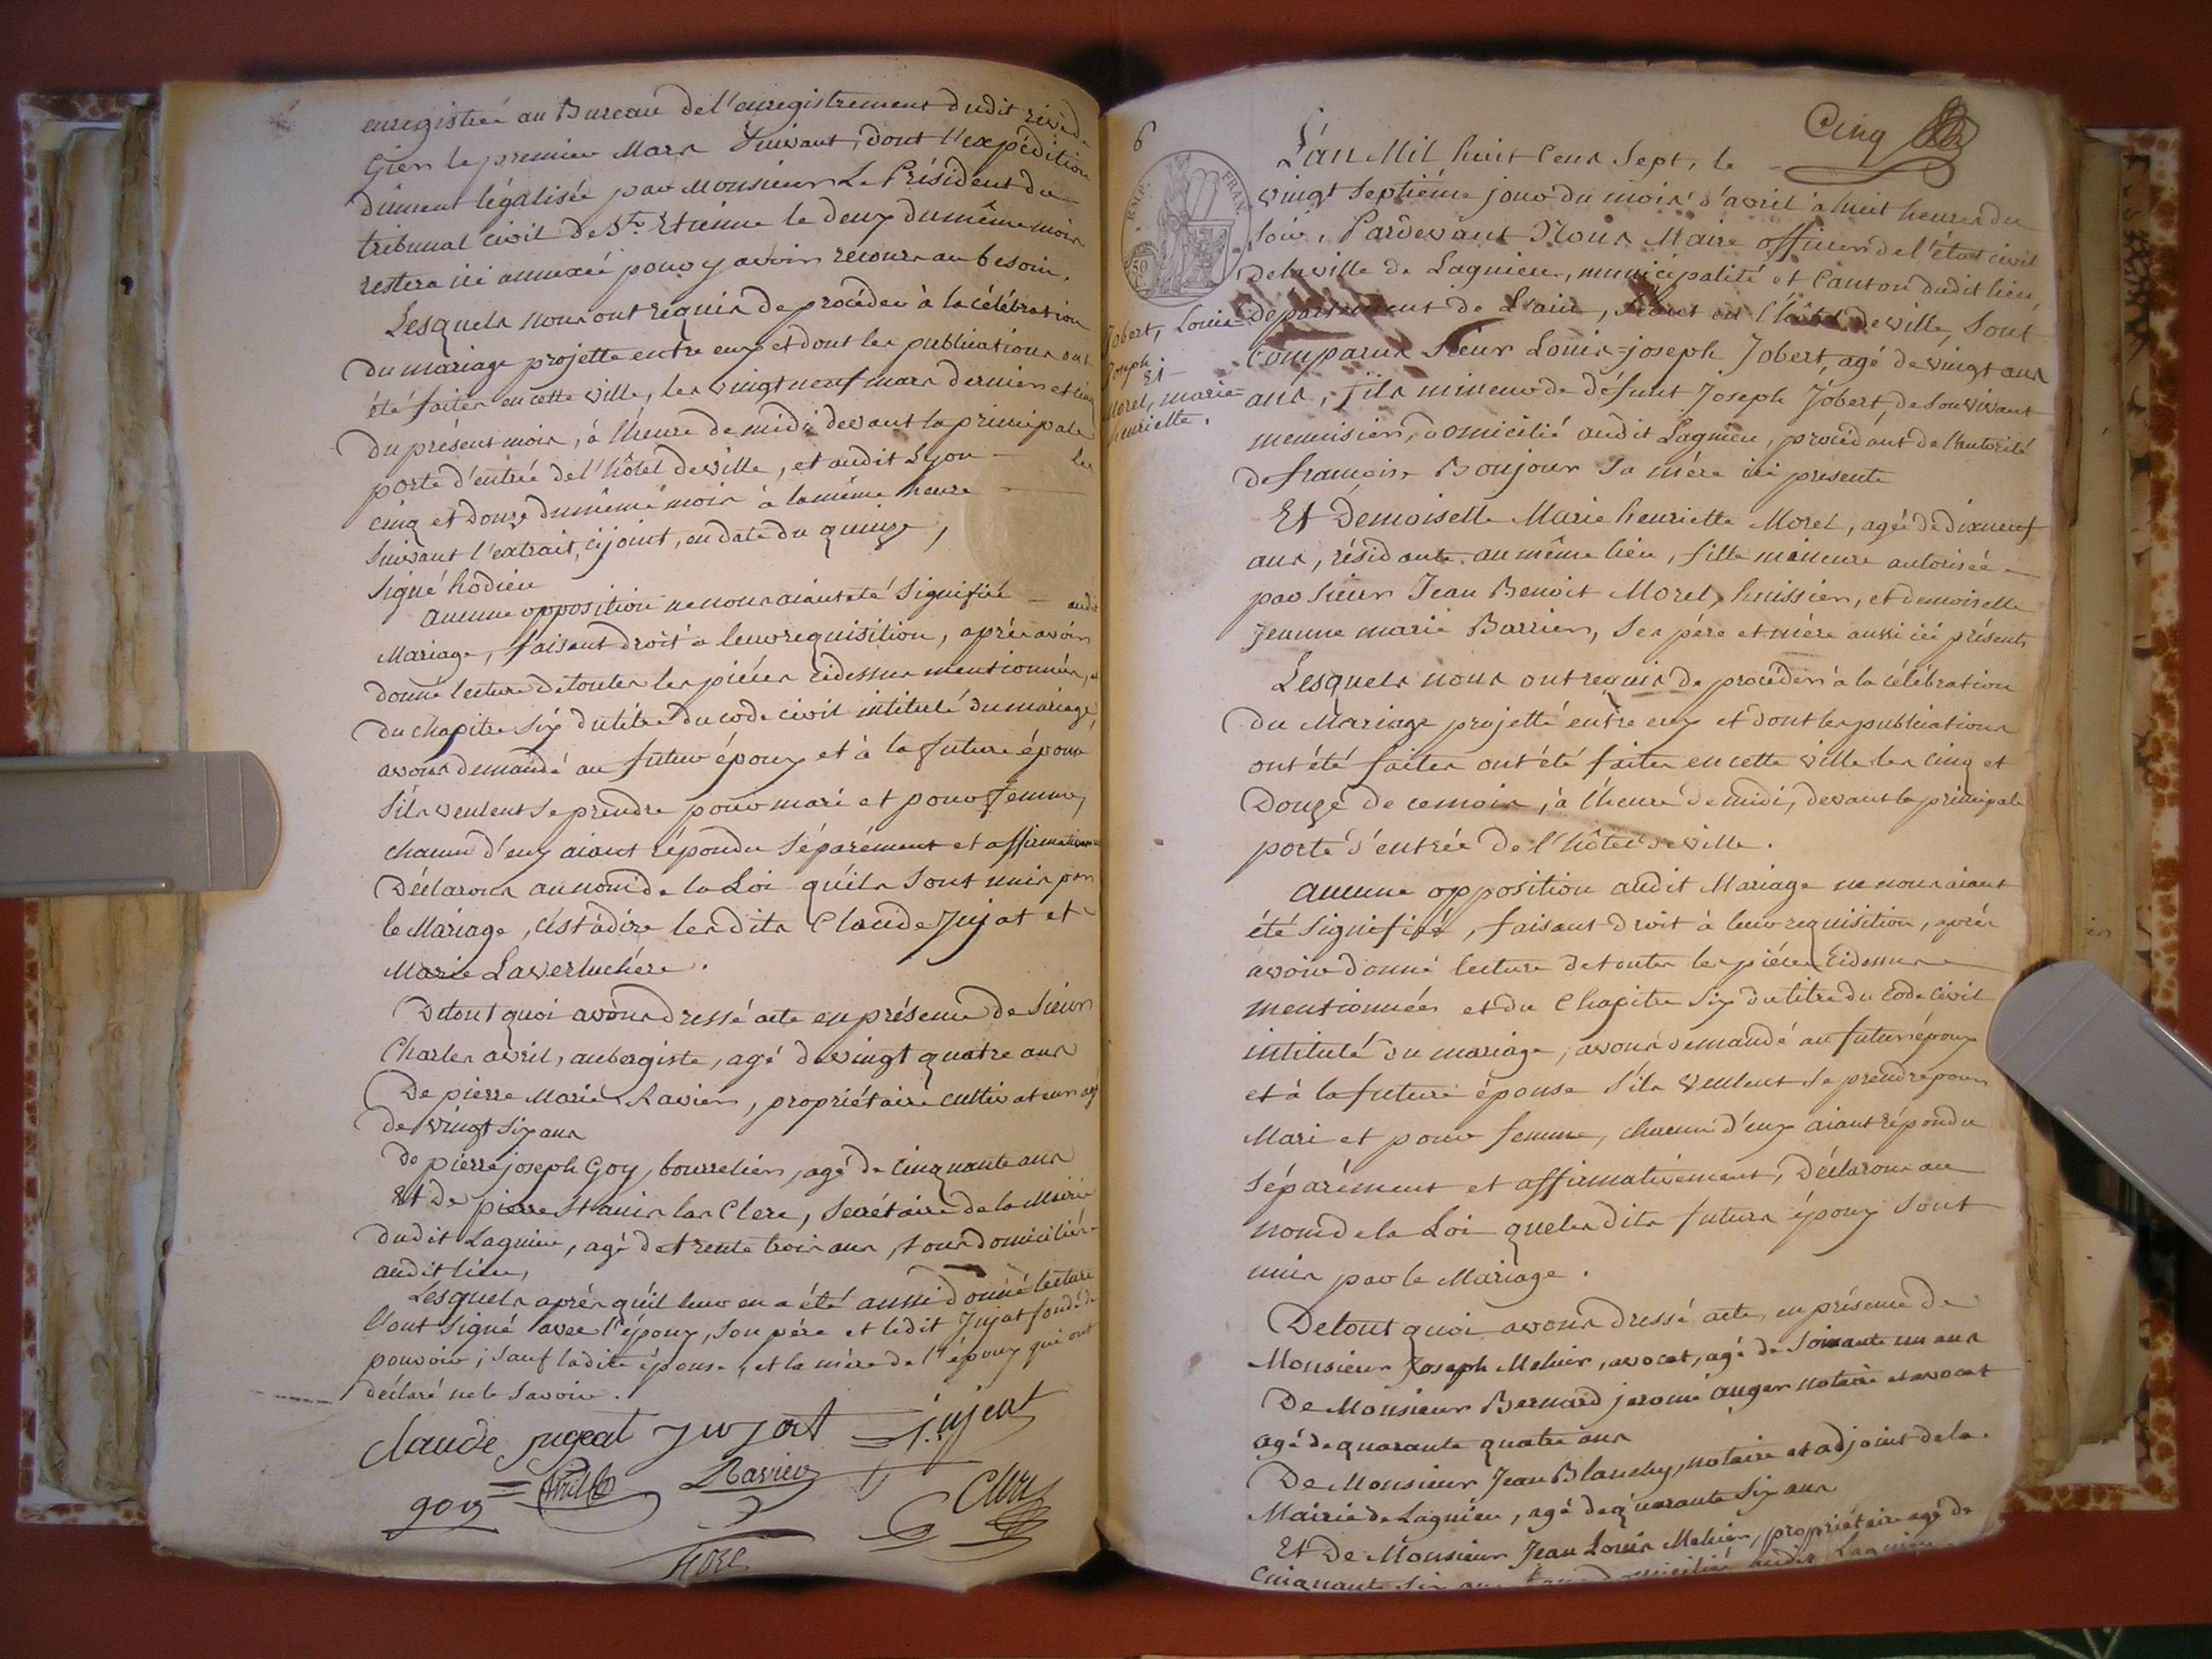 enregistrée au Bureau de l'enregistrement dudit rive de
Gien le premier Mars suivant, dont l'expédition
dûment légalisée par Monsieur Le Président du
tribunal civil de St. Etienne le deux du même mois
restera ici annexée pour y avoir recours au besoin,
Lesquels nous ont requis de procéder à la célébration
du mariage projetté entre eux et dont les publications ont
été faites en cette ville, les vingt neuf mars dernier et cinq
du présent mois, à l'heure de midi devant la principale
porte d'entrée de l'hôtel de ville, et audit Lyon — les
cinq et douze du même mois à la même heure —
suivant l'extrait, cijoint, en date du quinze,
signé hodieu
aucune opposition ne nous aiant été signifiée — audit
Mariage, faisant droit à leur requisition, après avoir
donné lecture de toutes les pièces cidessus mentionnées, et
du chapitre six du titre du code civil intitulé du mariage,
avons demandé au futur époux et à la future épouse
s'ils veulent se prendre pour mari et pour femme,
chacun d'eux aiant répondu séparément et affirmativement
Déclarons au nom de la Loi qu'ils sont unis par
le Mariage, c'est à dire lesdits Claude Jujat et
Marie Laverluchère.
De tout quoi avons dressé acte en présence de Sieur
Charles avril, aubergiste, agé de vingt quatre ans
De pierre Marie Ravier, propriétaire cultivateur agé
de vingt six ans
de pierre joseph Goy, bourrelier, agé de cinquante ans
Et De pierre Stanislas Clerc, Secrétaire de la Mairie
dudit Lagnieu, agé de trente trois ans, tous domiciliés
audit lieu,
Lesquels après qu'il leur en a été aussi donné lecture
l'ont signé avec l'époux, son père et ledit Jujat fondé de
pouvoir; sauf ladite épouse, et la mère de l'époux qui ont
déclaré ne le savoir.
claude jugeat jujat jujeat
goy Avril Ravier Clerc
6
Cinq
EMP. FRAN.
50
Jobert, Louis
Joseph
Et
Morel, marie
henriette.
L'an Mil huit Cent Sept, le
vingt septième jour du mois d'avril à huit heures du
soir, Pardevant Nous Maire officier de l'état civil
de la ville de Lagnieu, municipalité et Canton dudit lieu,
département de L'ain, séant en l'hôtel de ville, sont
Comparus Sieur Louis=joseph Jobert, agé de vingt ans
ans, fils mineur de défunt Joseph Jobert, de son vivant
menuisier, domicilié audit Lagnieu, procédant de l'autorité
de françoise Bonjour sa mère ici presente
Et Demoiselle Marie henriette Morel, agée de dixneuf
ans, résidante au même lieu, fille mineure autorisée
par Sieur Jean Benoit Morel, huissier, et demoiselle
Jeanne marie Barrier, ses père et mère aussi ici présents
Lesquels nous ont requis de procéder à la célébration
du Mariage projetté entre eux et dont les publications
ont été faites ont été faites en cette ville les cinq et
Douze de ce mois, à l'heure de midi, devant la principale
porte d'entrée de l'hôtel de ville.
Aucune opposition audit Mariage ne nous aiant
été signifiée, faisant droit à leur requisition, après
avoir donné lecture de toutes les pièces Cidessus
mentionnées et du Chapitre six du titre du Code Civil
intitulé du mariage, avons demandé au futur époux
et à la future épouse s'ils veulent se prendre pour
Mari et pour femme, chacun d'eux aiant répondu
séparément et affirmativement, Déclarons au
nom de la Loi que lesdits futurs époux sont
unis par le Mariage.
De tout quoi avons dressé acte, en présence de
Monsieur Joseph Mehier, avocat, agé de soixante un ans
De Monsieur Bernard jerome auger notaire et avocat
agé de quarante quatre ans
De Monsieur Jean Blanchy, notaire et adjoint de la
Mairie de Lagnieu, agé de quarante six ans
Et De Monsieur Jean Louis Mehier, propriétaire agé de
cinquante six ans tous domiciliés audit Lagnieu